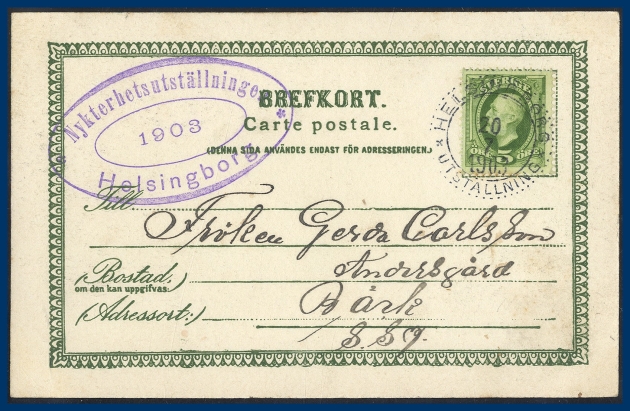 Nykterhetsutställningen
1903
Helsingborg
BREFKORT.
Carte postale.
(DENNA SIDA ANVÄNDES ENDAST FÖR ADRESSERINGEN.)
SVERIGE
5
HELSINGBORG
20
1903
UTSTÄLLNING
Till
Fröken Gerda Carlsson
(Bostad,
om den kan uppgifvas:)
Andersgård
Adressort:)
S.Sg.